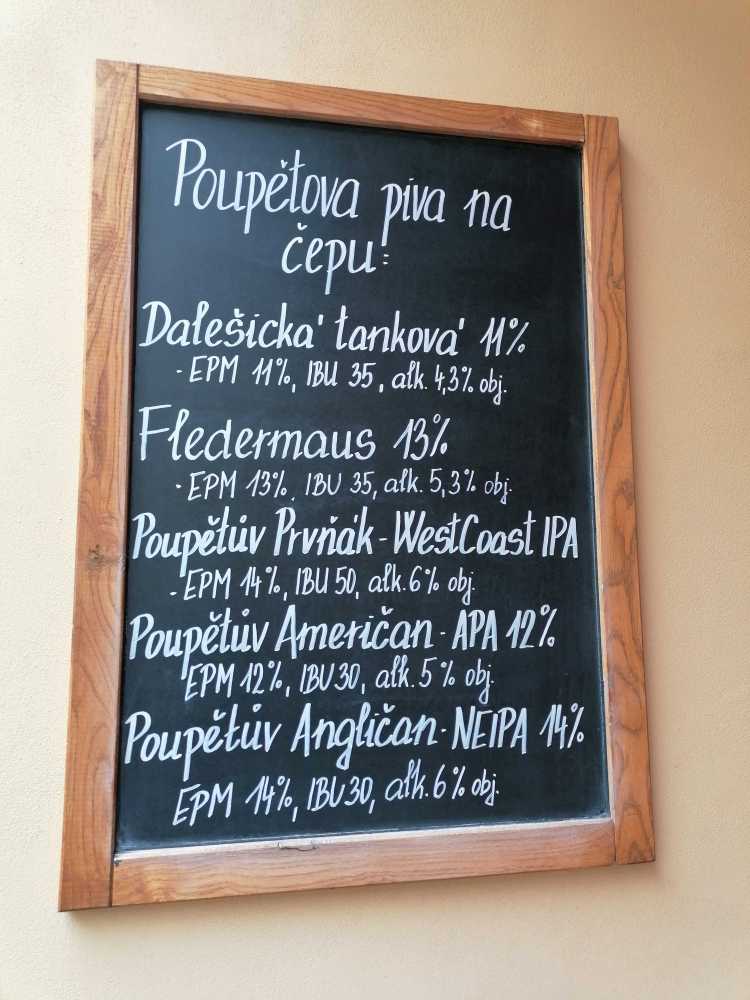 Poupětova piva na
čepu:
Dalešická tanková 11%
- EPM 11%, IBU 35, alk. 4,3% obj.
Fledermaus 13%
- EPM 13%, IBU 35, alk. 5,3% obj.
Poupětův Prvňák - WestCoast IPA
- EPM 14%, IBU 50, alk. 6% obj.
Poupětův Američan - APA 12%
EPM 12%, IBU 30, alk. 5% obj.
Poupětův Angličan - NEIPA 14%
EPM 14%, IBU 30, alk. 6% obj.